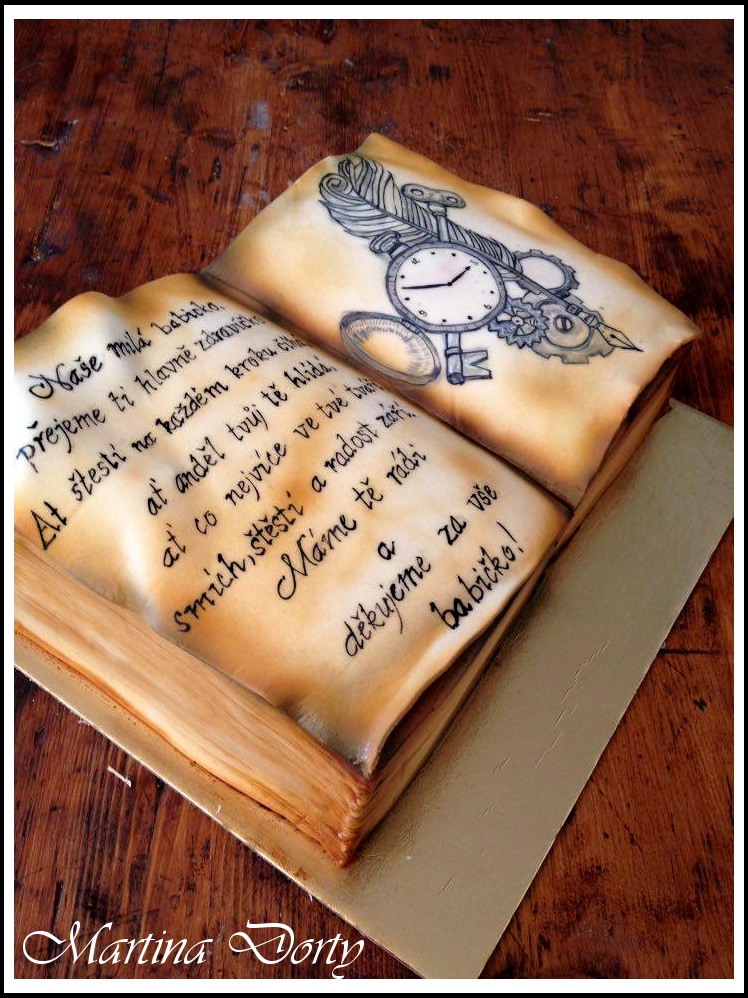 Naše milá babičko,
přejeme ti hlavně zdravíčko
Ať štestí na každém kroku číhá
ať anděl tvůj tě hlídá,
ať co nejvíce ve tvé tváři
smích, štěstí a radost září.
Máme tě rádi
a
děkujeme za vše
babičko!
12
3
6
9
Martina Dorty